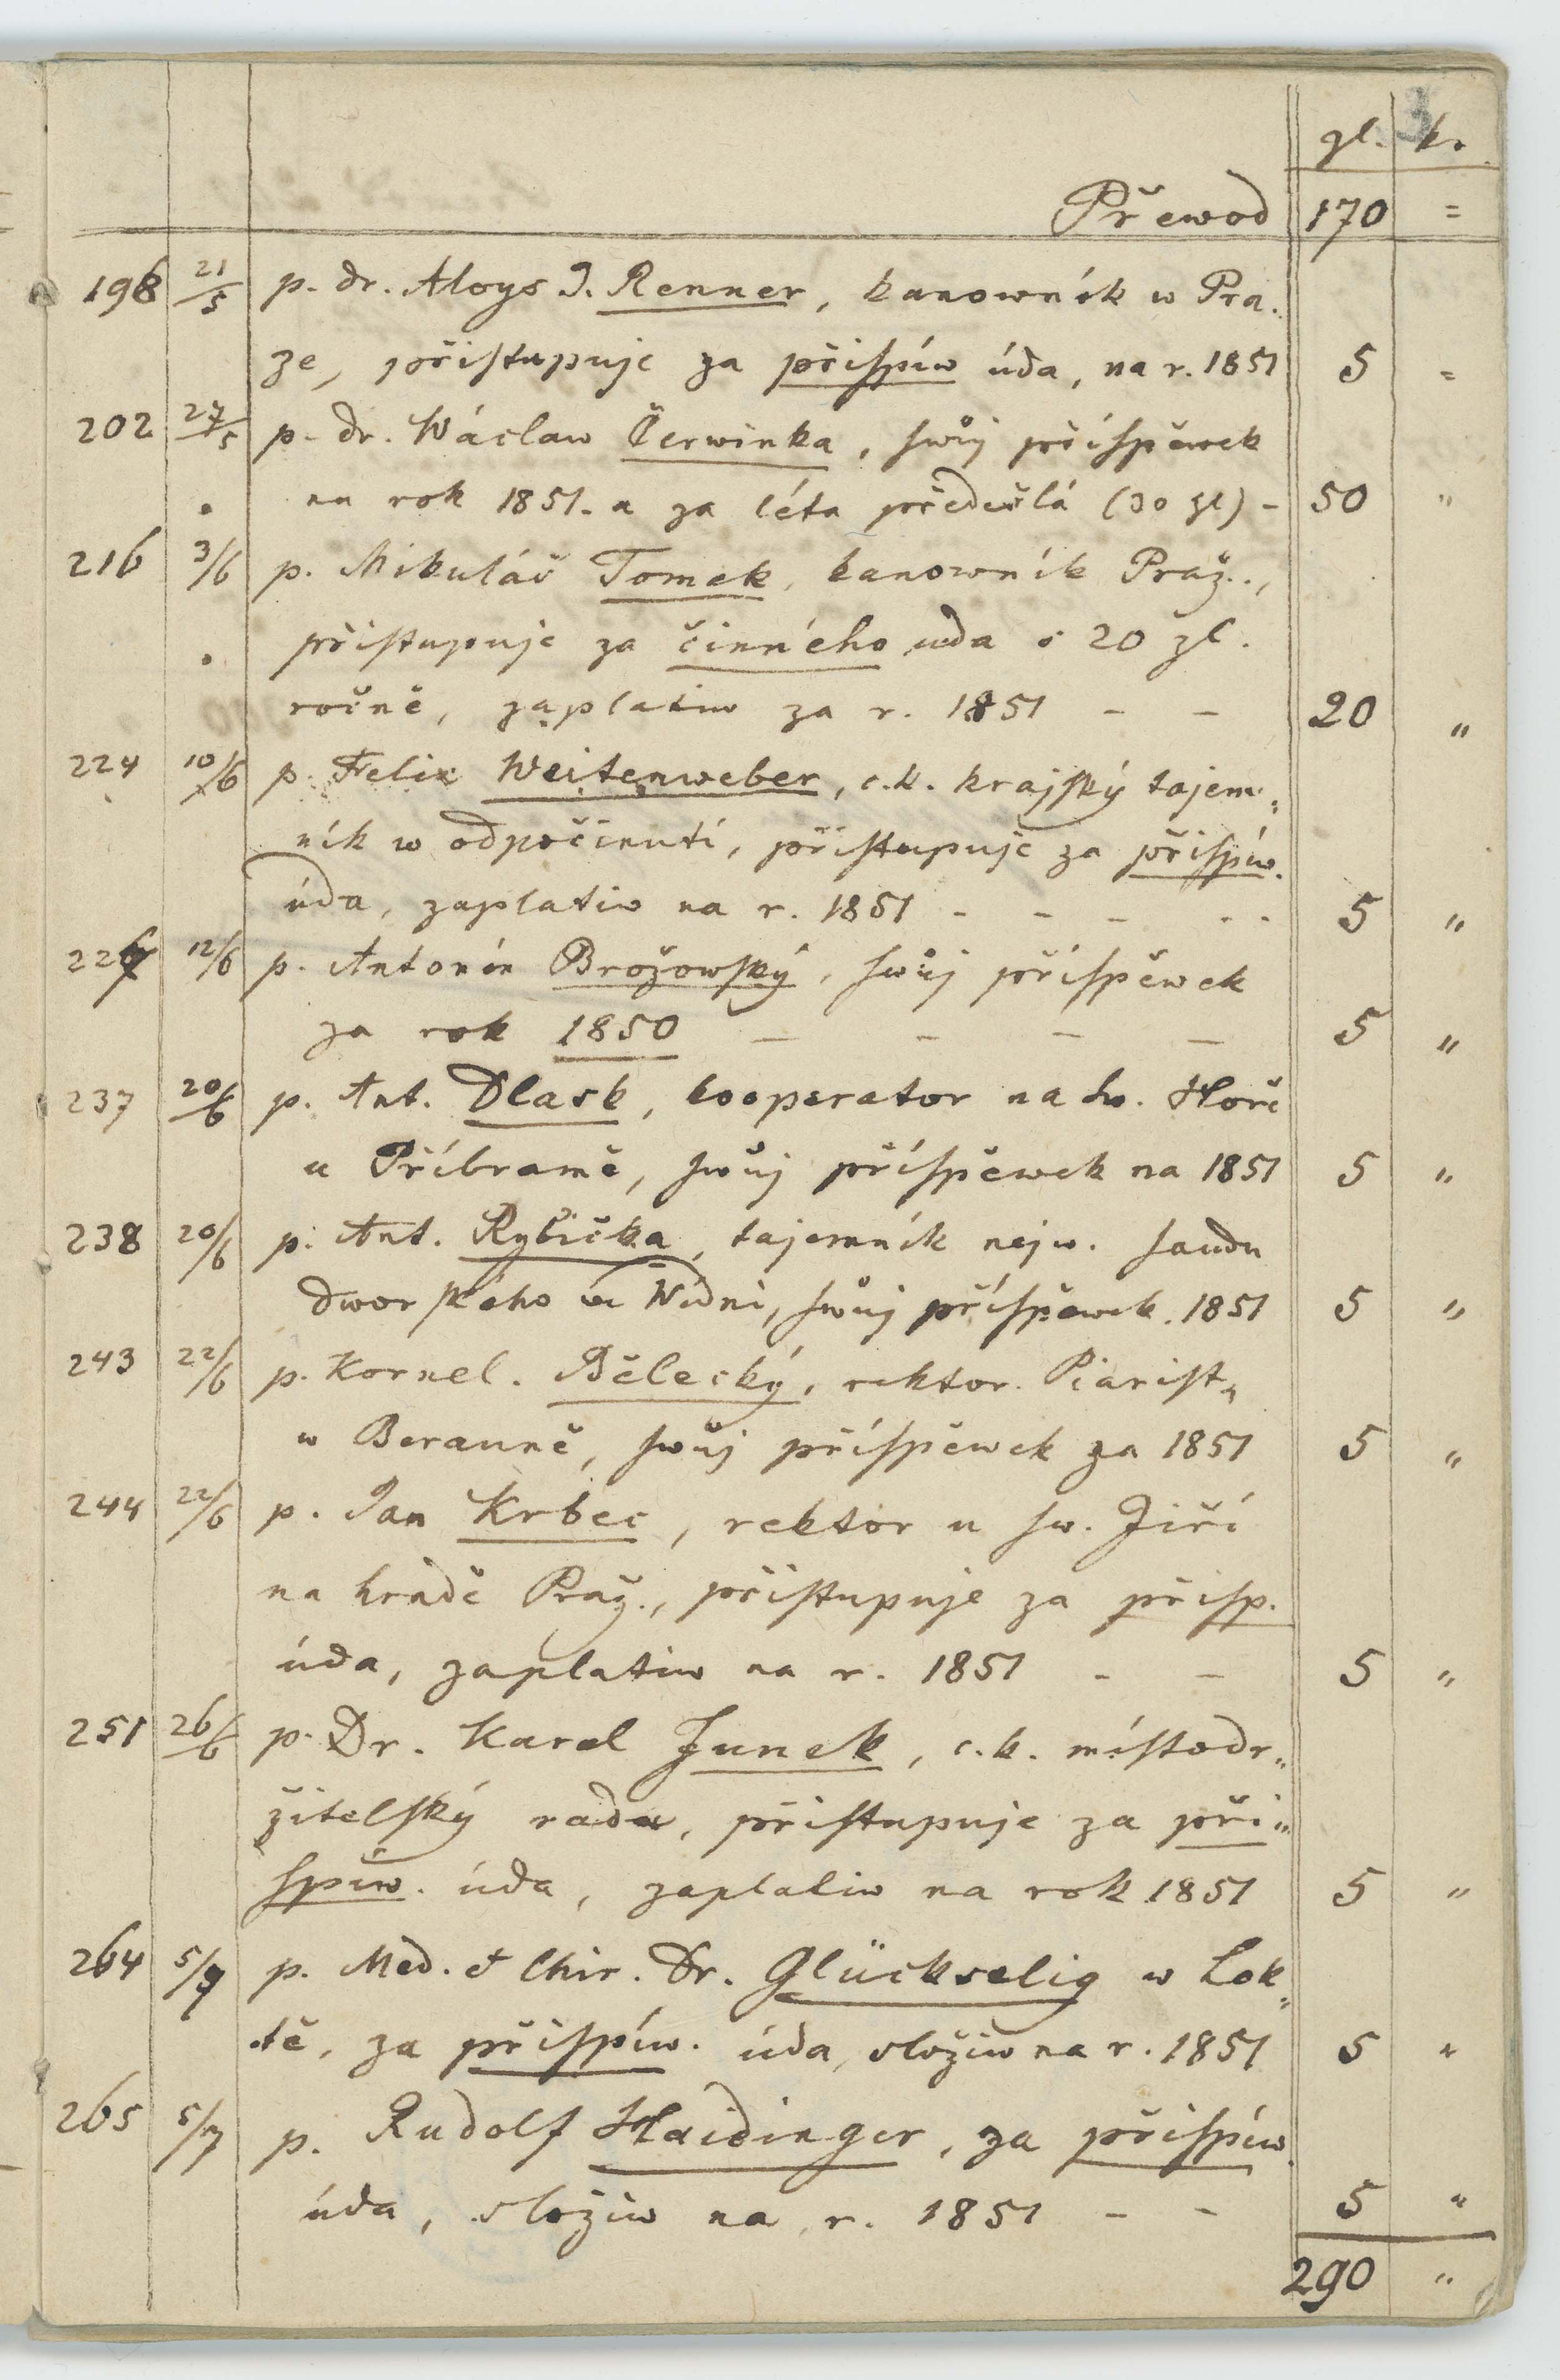 3
zl. kr.
Přewod 170 =
198 21/5 p. dr. Aloys J. Renner, kanowník w Pra-
ze, přistupuje za přispíw úda, na r. 1851 5 =
202 27/5 p. dr. Wáclaw Čerwinka, swůj příspěwek
na rok 1851. a za léta předešlá (30 zl) - 50 "
216 3/6 p. Mikuláš Tomek, kanowník Praž.,
přistupuje za činného uda s 20 zl.
ročně, zaplatiw za r. 1851 - - 20 "
224 10/6 p. Felix Weitenweber, c.k. krajský tajem-
ník w odpočinutí, přistupuje za přispíw.
úda, zaplatiw na r. 1851 - - - - - 5 "
227 12/6 p. Antonín Brožowský, swůj příspěwek
za rok 1850 - - - - 5 "
237 20/6 p. Ant. Dlask, kooperator na sw. Hoře
u Příbramě, swůj příspěwek na 1851 5 "
238 20/6 p. Ant. Rybička, tajemník nejw. saudu
dworského we Wídni, swůj příspěwek. 1851 5 "
243 22/6 p. Kornel. Bělecký, rektor. Piarist.
w Berauně, swůj příspěwek za 1851 5 "
244 22/6 p. Jan Krbec, rektor u sw. Jiří
na hradě Praž., přistupuje za přisp.
úda, zaplatiw na r. 1851 - - 5 "
251 26/6 p. Dr. Karel Junek, c.k. místodr-
žitelský rada, přistupuje za při-
spíw. úda, zaplatiw na rok 1851 5 "
264 5/7 p. Med. & Chir. Dr. Glückselig w Lok-
tě, za přispíw. úda, složiw na r. 1851 5 "
265 5/7 p. Rudolf Haidinger, za přispíw.
úda, složiw na r. 1851 - - 5 "
290 "